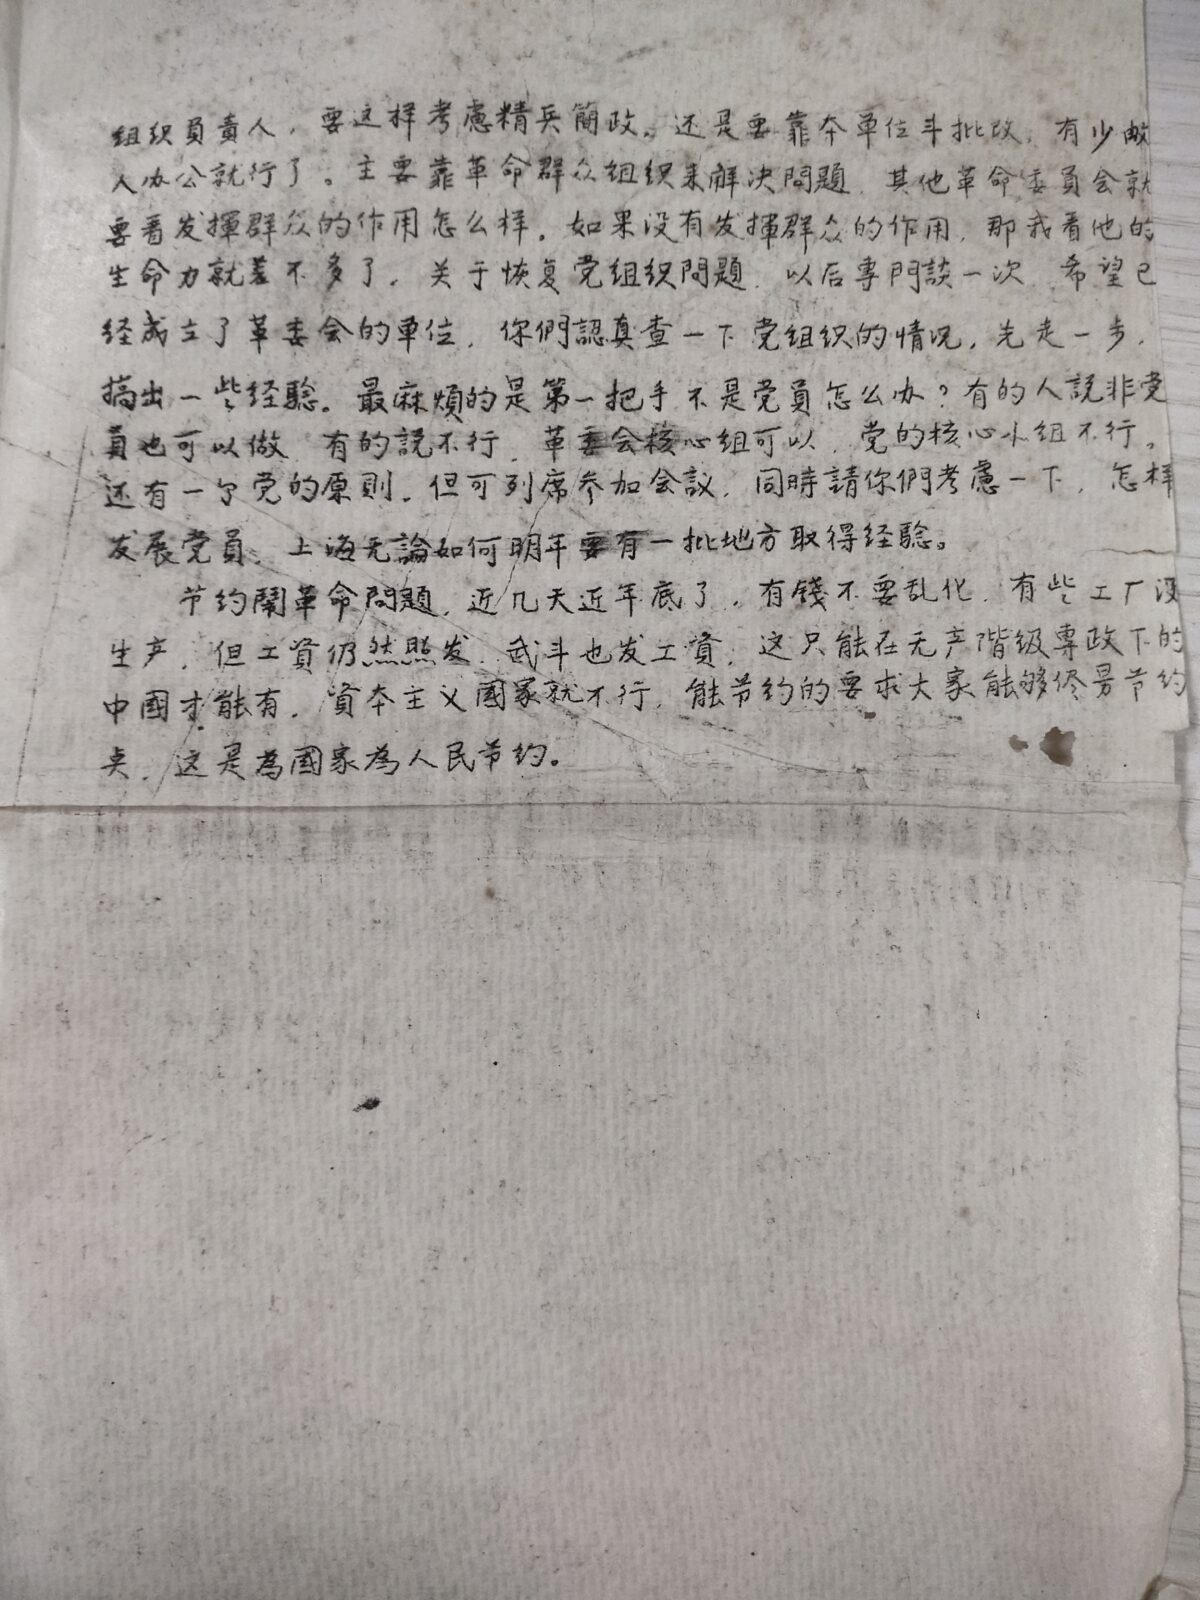 组织員責人，要这样考慮精兵簡政。还是要靠本单位斗批改，有少数
人办公就行了。主要靠革命群众组织来解决問題，其他革命委員会就
要看发揮群众的作用怎么样。如果没有发揮群众的作用，那我看他的
生命力就差不多了。关于恢复党组织問題，以后專門談一次，希望已
经成立了革委会的单位，你們認真查一下党组织的情况，先走一步，
搞出一些经驗。最麻煩的是第一把手不是党員怎么办？有的人説非党
員也可以做，有的説不行，革委会核心组可以，党的核心小组不行。
还有一个党的原則。但可列席参加会議，同時請你們考慮一下，怎样
发展党員，上海无論如何明年要有一批地方取得经驗。
节约鬧革命問題，近几天近年底了，有錢不要乱化，有些工厂没
生产，但工資仍然照发，武斗也发工資，这只能在无产階级專政下的
中國才能有，資本主义國家就不行，能节约的要求大家能够侭另节约
点，这是為國家為人民节约。